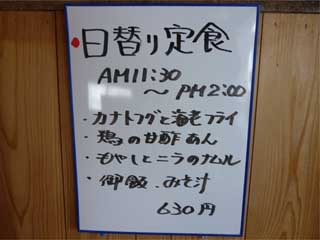 日替り定食
AM11:30
～PM2:00
・カナトフグと海老フライ
・鶏の甘酢あん
・もやしとニラのナムル
・御飯、みそ汁
630円